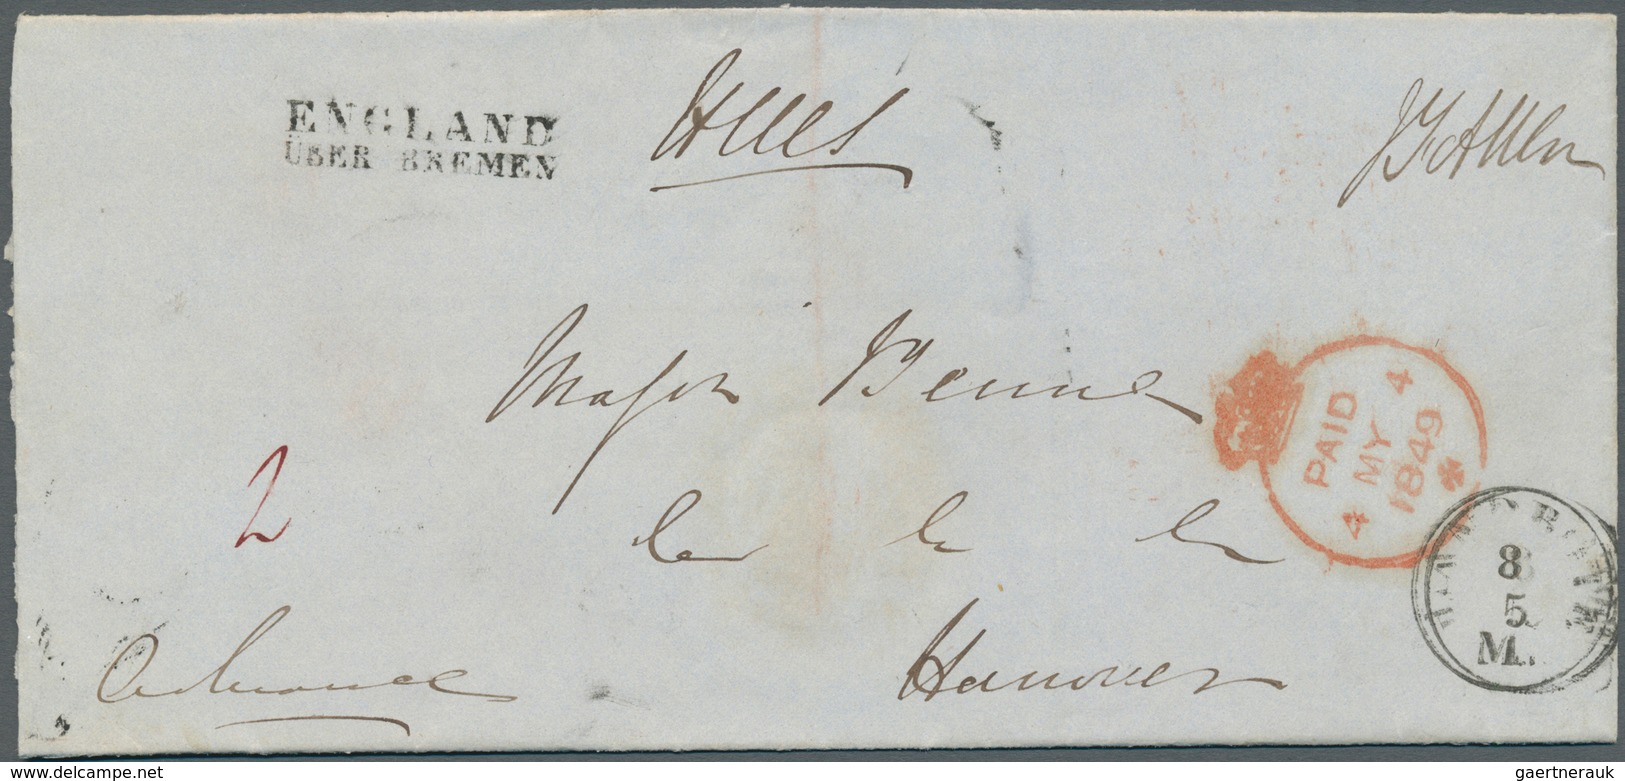 ENGLAND
ÜBER BREMEN
PAID
4 MY 4
1849
Major Benne
2
HANNOVER
8
5
M.
Ordnance
Hanover
delcampe.net
gaertnerauk